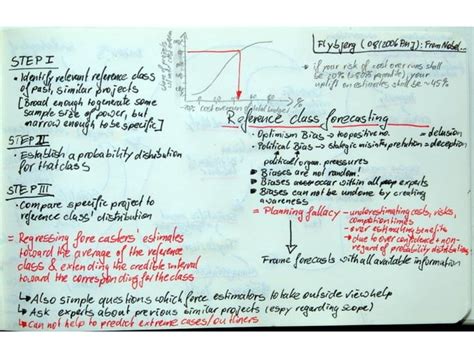 STEP I
• Identify relevant reference class
of past, similar projects
[Broad enough to generate some
sample size of power, but
narrow enough to be specific]
STEP II
• Establish a probability distribution
for that class
STEP III
• Compare specific project to
reference class' distribution
= Regressing forecasters' estimates
toward the average of the reference
class & extending the credible interval
toward the corresponding for the class
↳ Also simple questions which force estimators to take outside view help
↳ Ask experts about previous similar projects (espy regarding scope)
↳ Can not help to predict extreme cases/outliners
Flybjerg (08/2006 PMJ): From Nobel...
if your risk of cost overruns shall
be 20%
your
uplift on estimates shall be ~45%
Reference class forecasting
• Optimism Bias → too positive → delusion
• Political Bias → strategic misinterpretation → deception
political/organ. pressures
• Biases are not random!
• Biases occur within all experts
• Biases can not be undone by creating
awareness
= Planning fallacy
- underestimating costs, risks,
completion times
- over estimating benefits
• due to over confidence + non-
regard of probability distribution
Frame forecasts with all available information